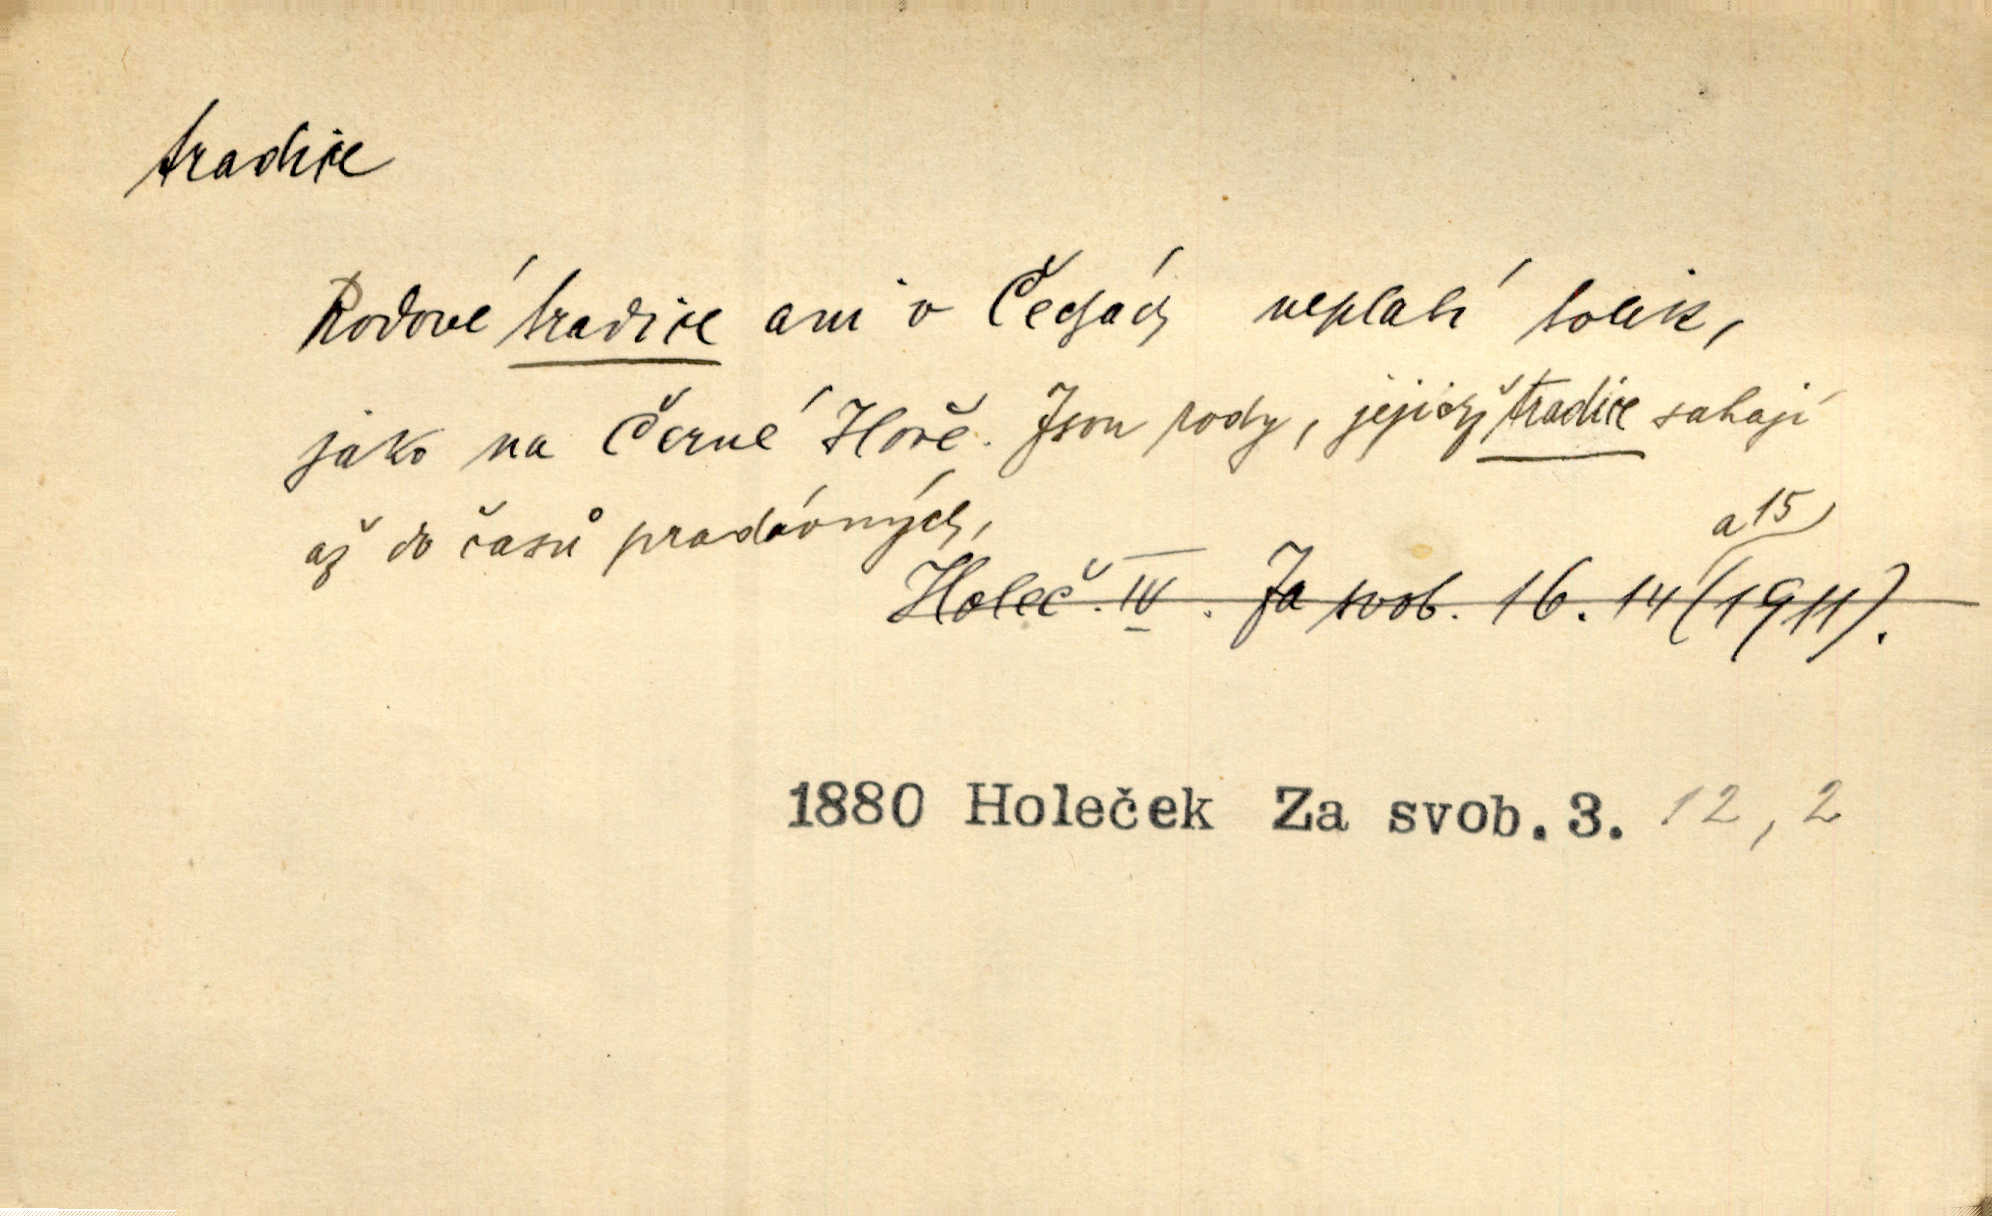 tradice
Rodové tradice ani v Čechách neplatí tolik,
jako na Černé Hoře. Jsou rody, jejichž tradice sahají
až do časů pradávných,
a 15
Holeč. IV. Za svob. 16. 14 (1911).
1880 Holeček Za svob. 3. 12, 2